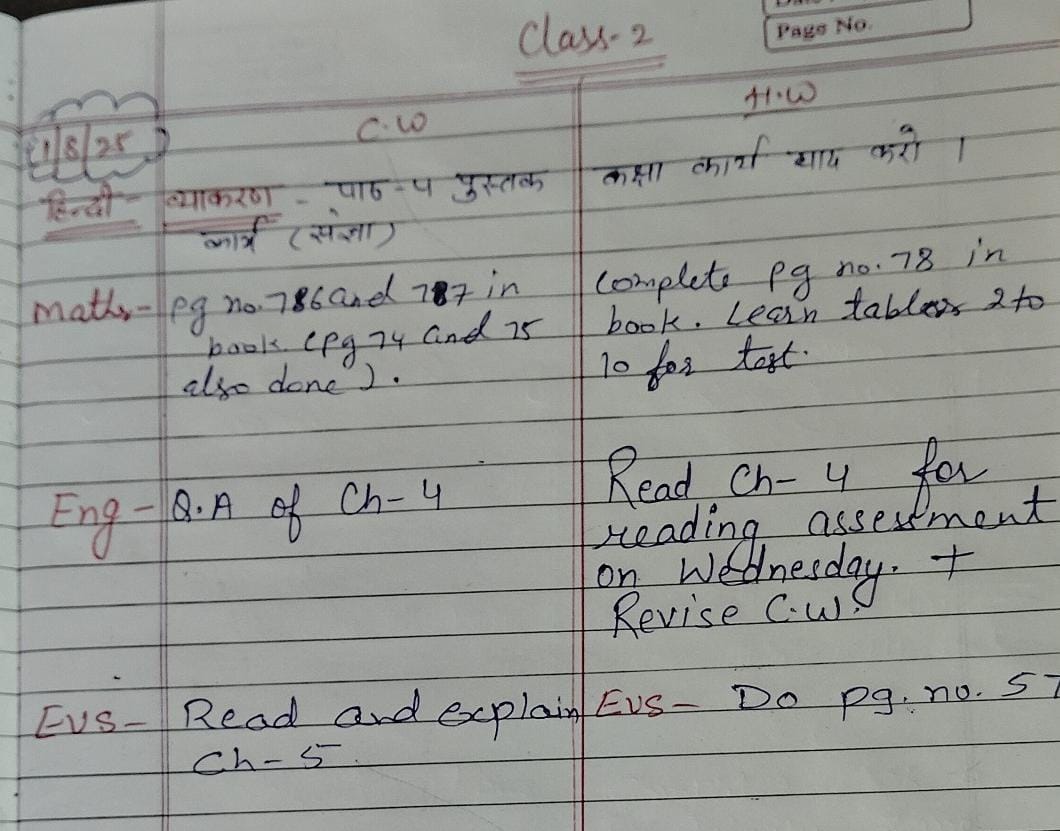 Page No.
Class-2
C.W
H.W
1/8/25
हिन्दी- व्याकरण - पाठ-५ पुस्तक
कार्य (संज्ञा)
कक्षा कार्य याद करो ।
Maths- pg no. 786 and 787 in
book (pg 74 and 75
also done).
complete pg no. 78 in
book. Learn tables 2 to
10 for test.
Eng - Q.A of Ch-4
Read Ch- 4 for
reading assessment
on Wednesday. +
Revise C.W.
EVS- Read and explain
Ch-5
EVS- Do pg. no. 57